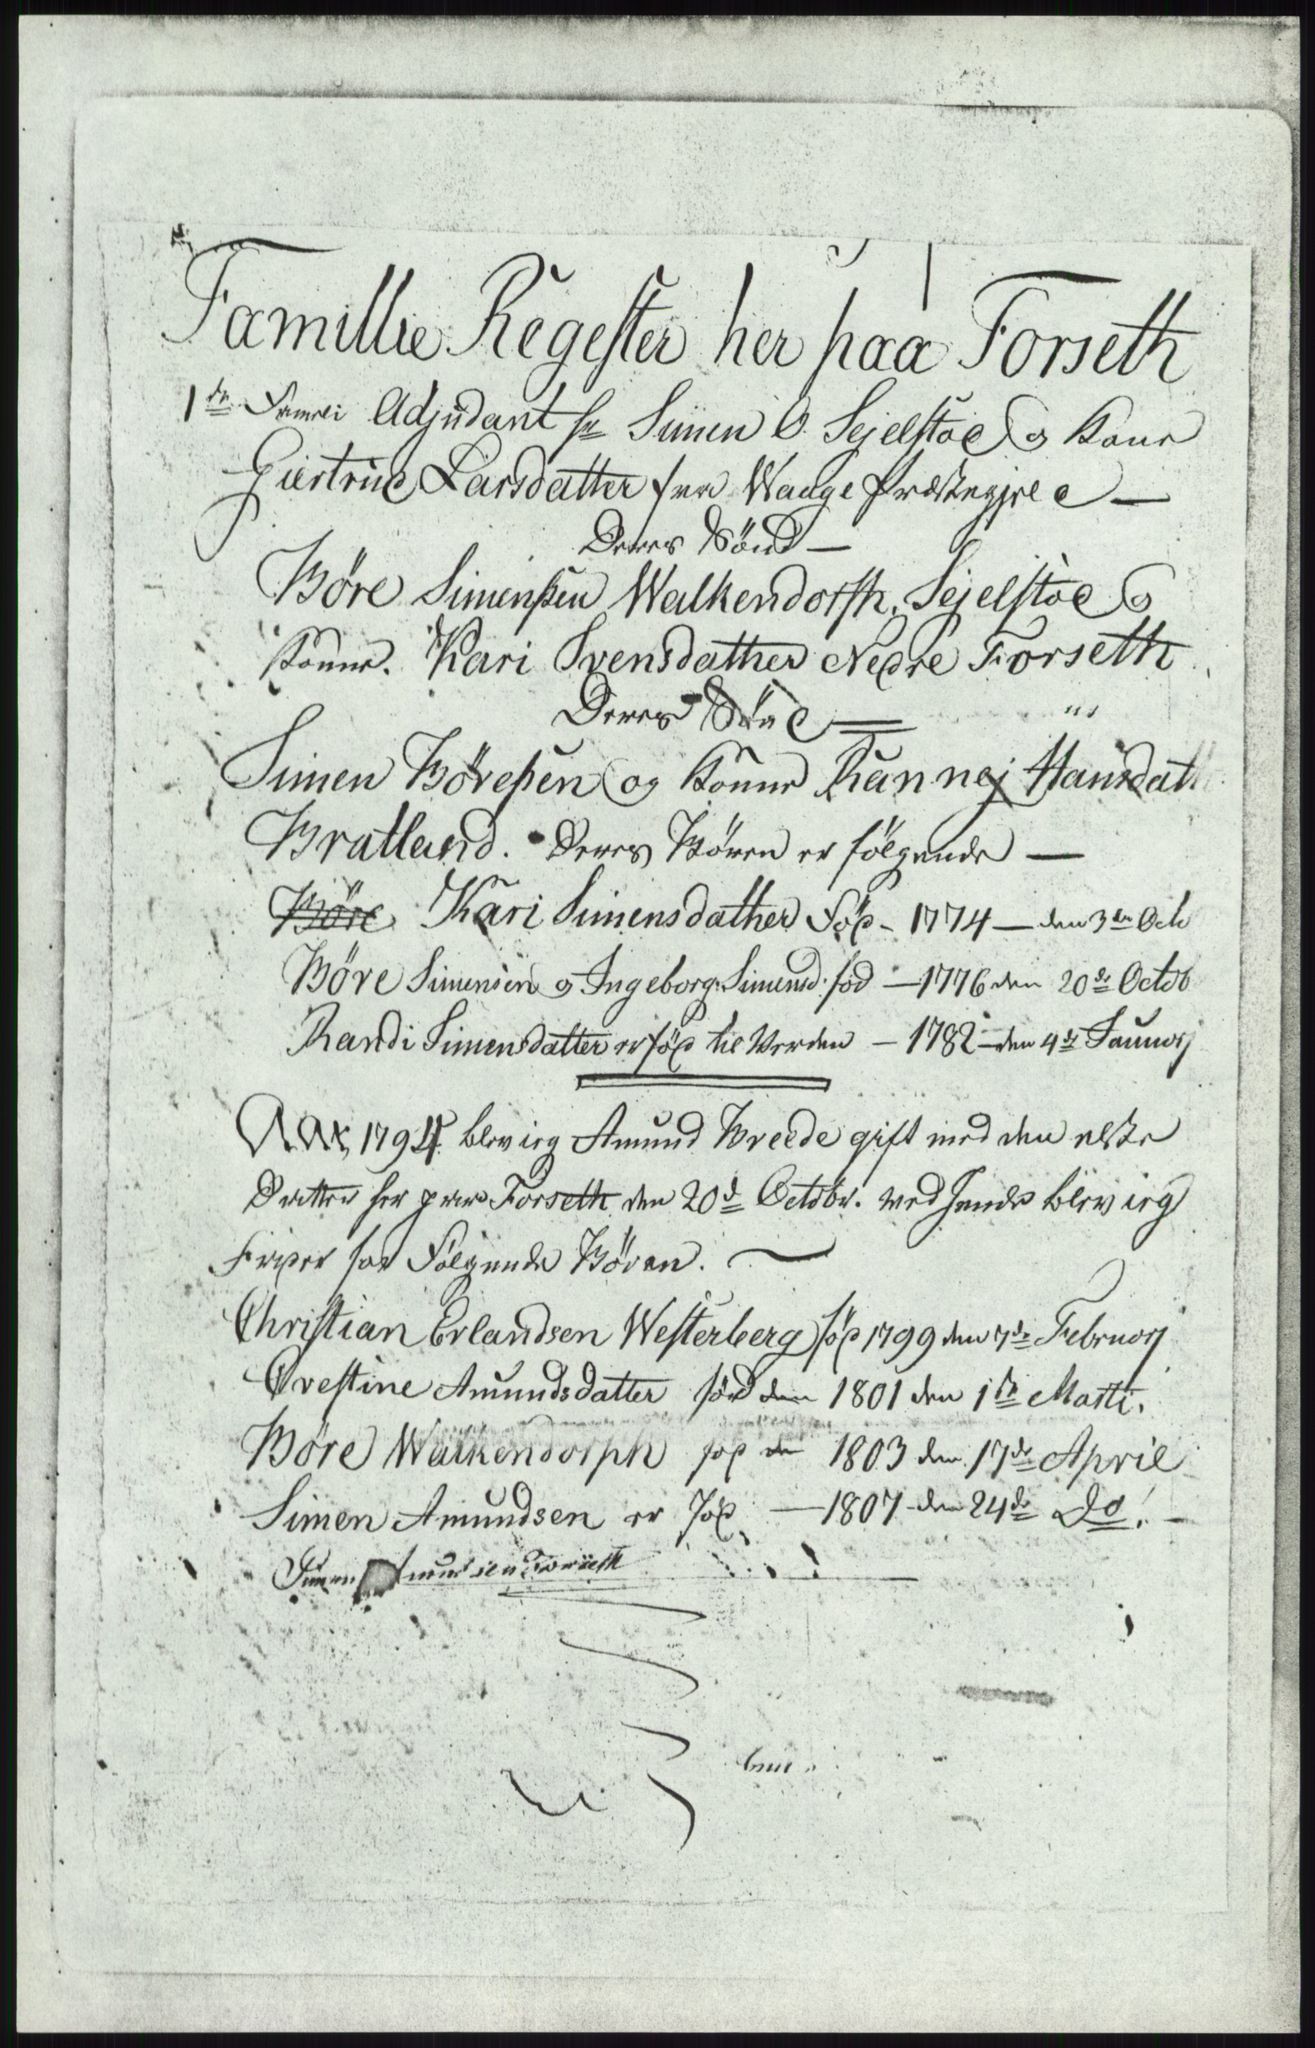 Famillie Regester her paa Forseth
1ste Familie Adjudant hr Simen O. Sejelstad og Kone
Giertrud Larsdatter fra Waage Præstegjeld —
Deres Sönd —
Böre Simenssen Walkendorph, Sejelstad og
Konne. Kari Svensdather Nedre Forseth
Deres Sönd —
Simen Böressen og Konne Rannej Hansdatt
Bratland. Deres Bören er fölgende —
Böre Kari Simensdather Föd - 1774 — den 3de Octo
Böre Simensen og Ingeborg Simensd. föd — 1776 den 20de Octob
Randi Simensdatter er föd til Verden — 1782 — den 4de Januarj
Aar 1794 blev ieg Amund Breede gift med den elste
Datter her paa Forseth den 20de Octobr. med hende blev ieg
Fader for Fölgende Bören.
Christian Erlandsen Westerberg föd 1799 den 7de Februarj
Orestine Amundsdatter föd den 1801 den 1ste Marti.
Böre Walkendorph föd den 1803 den 17de April
Simen Amundsen er Föd — 1807 den 24de Do! —
Simen Amundsen Forseth